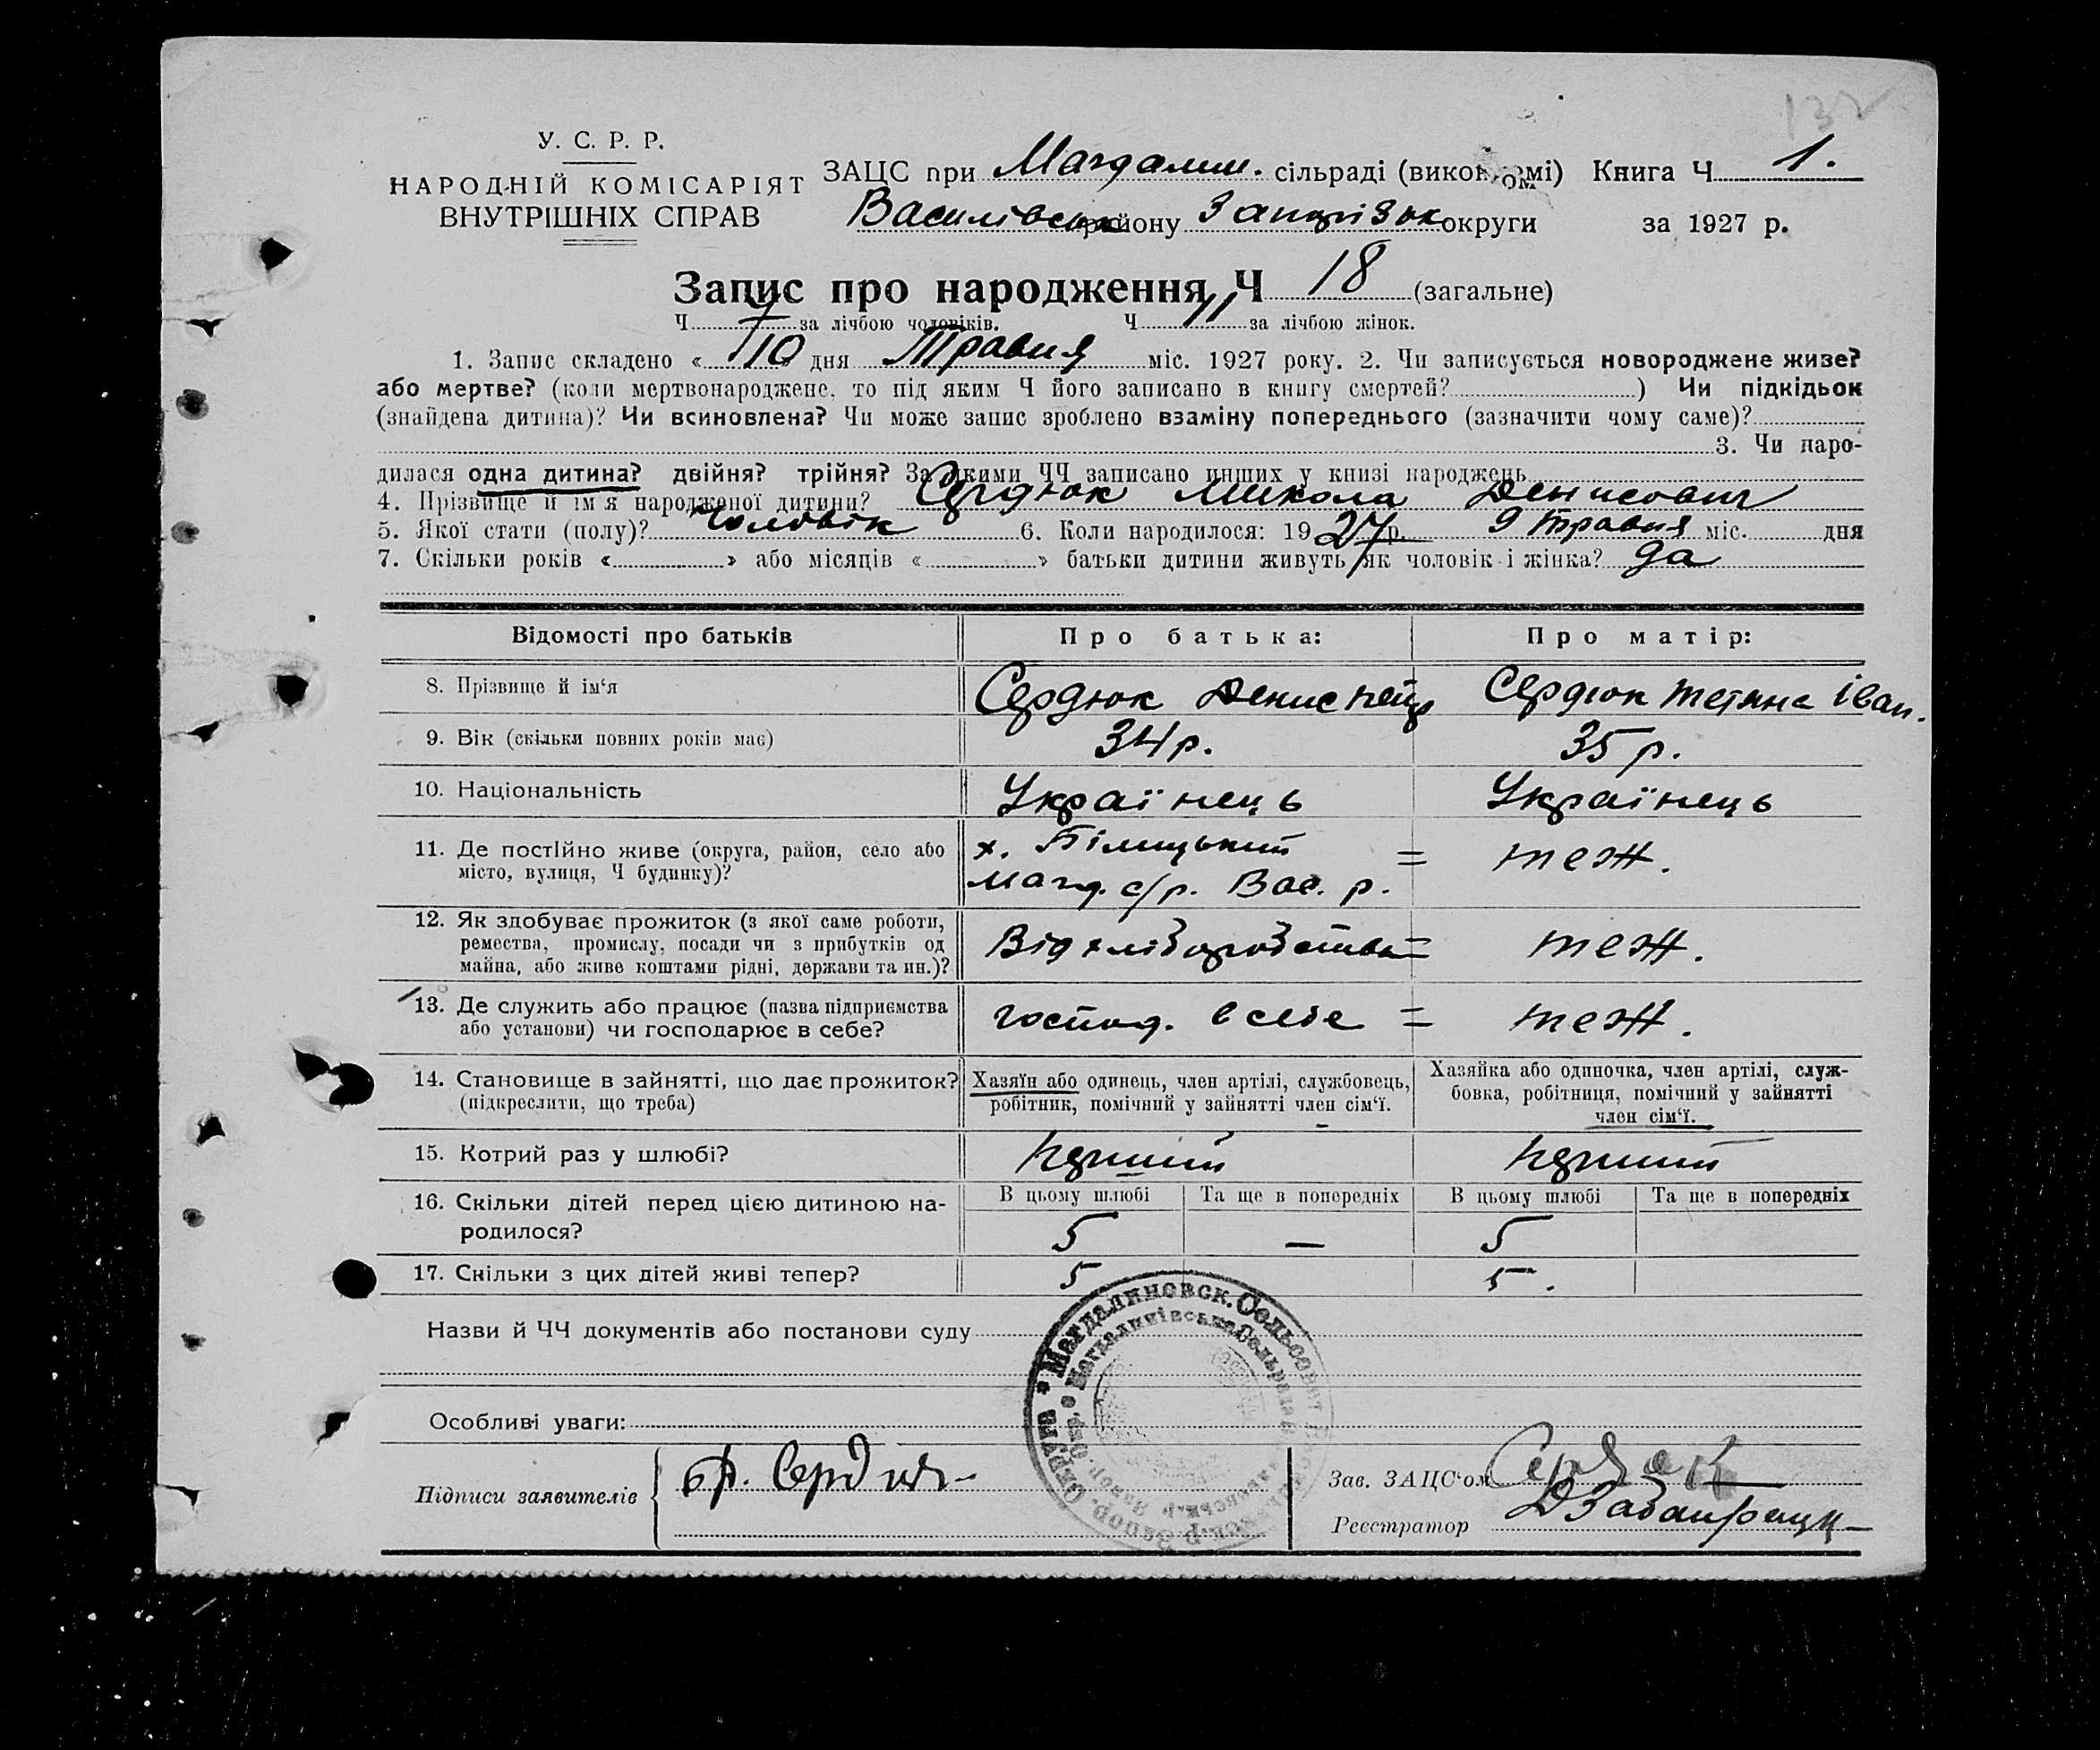 132
У. С. Р. Р.
НАРОДНІЙ КОМІСАРІЯТ
ВНУТРІШНІХ СПРАВ
ЗАЦС при Магдалин. сільраді (викономі) Книга Ч 1.
Василівськ району Запорізьк округи за 1927 р.
Запис про народження Ч 18 (загальне)
Ч 7 за лічбою чоловіків. Ч 11 за лічбою жінок.
1. Запис складено « 10 дня Травня міс. 1927 року. 2. Чи записується новороджене живе?
або мертве? (коли мертвонароджене, то під яким Ч його записано в книгу смертей? ) Чи підкідьок
(знайдена дитина)? Чи всиновлена? Чи може запис зроблено взаміну попереднього (зазначити чому саме)?
3. Чи наро-
дилася одна дитина? двійня? трійня? За якими ЧЧ записано инших у книзі народжень
4. Прізвище й ім'я народженої дитини? Сердюк Микола Денисович
5. Якої стати (полу)? чоловік 6. Коли народилося: 1927 р. 9 травня міс. дня
7. Скільки років « » або місяців « » батьки дитини живуть як чоловік і жінка? да
Відомості про батьків Про батька: Про матір:
8. Прізвище й ім'я Сердюк Денис Петр Сердюк Тетяна Іван.
9. Вік (скільки повних років має) 34 р. 35 р.
10. Національність Українець Українець
11. Де постійно живе (округа, район, село або
місто, вулиця, Ч будинку)? х. Білицький
Магд. с/р. Вас. р. = теж.
12. Як здобуває прожиток (з якої саме роботи,
ремества, промислу, посади чи з прибутків од
майна, або живе коштами рідні, держави та ин.)? Від хліборобства = теж.
13. Де служить або працює (назва підприємства
або установи) чи господарює в себе? господ. в себе = теж.
14. Становище в зайнятті, що дає прожиток?
(підкреслити, що треба)
Хазяїн або одинець, член артілі, службовець,
робітник, помічний у зайнятті член сім'ї.
Хазяйка або одиночка, член артілі, служ-
бовка, робітниця, помічний у зайнятті
член сім'ї.
15. Котрий раз у шлюбі? перший перший
16. Скільки дітей перед цією дитиною на-
родилося?
В цьому шлюбі Та ще в попередніх В цьому шлюбі Та ще в попередніх
5 — 5
17. Скільки з цих дітей живі тепер? 5 5.
Назви й ЧЧ документів або постанови суду
Магдалиновск. Сельсовет
Магдалинівська Сельрада
Запор. Округа
Особливі уваги:
Підписи заявителів Сердюк
Зав. ЗАЦС'ом Сердюк
Реєстратор